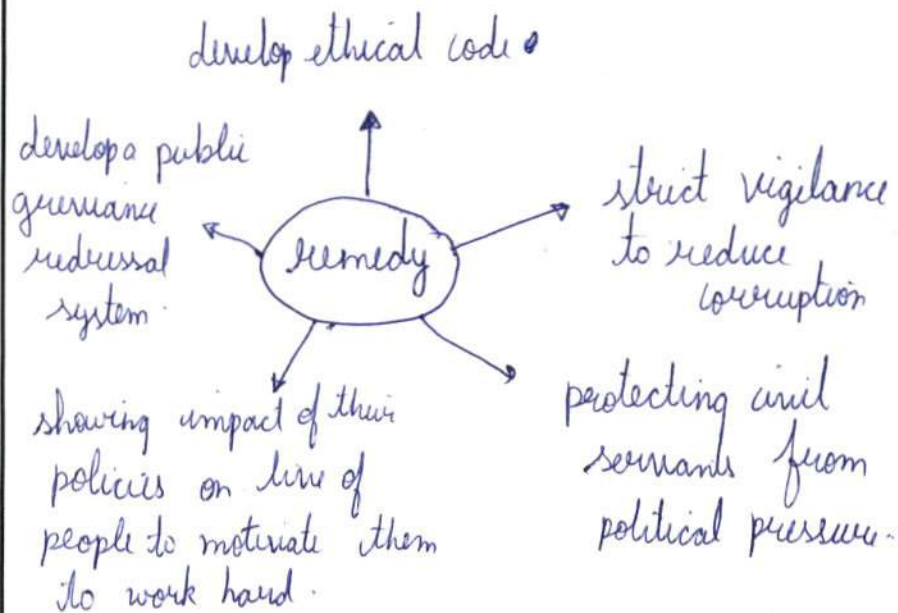 develop ethical code.
develop a public
grievance
redressal
system.
remedy
strict vigilance
to reduce
corruption
showing impact of their
policies on live of
people to motivate them
to work hard.
protecting civil
servants from
political pressure.